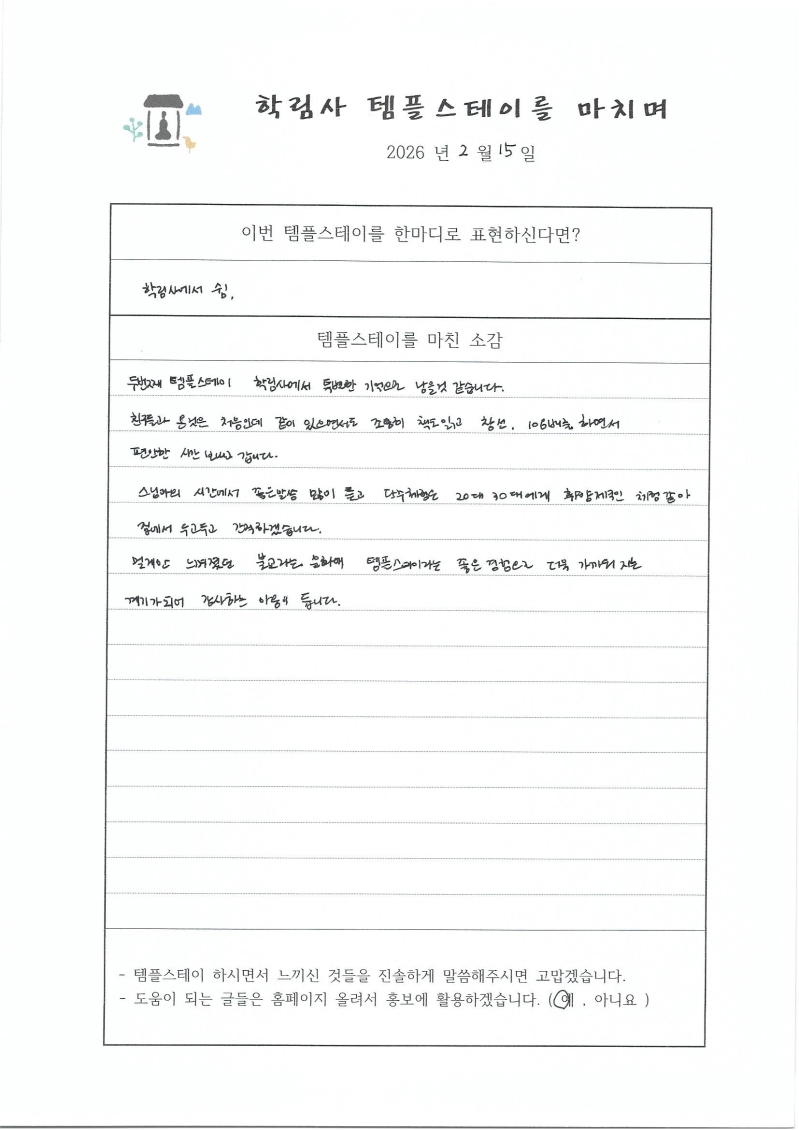 학림사 템플스테이를 마치며
2026 년 2 월 15 일
이번 템플스테이를 한마디로 표현하신다면?
학림사에서 쉼,
템플스테이를 마친 소감
두번째 템플스테이 학림사에서 특별한 기억으로 남을것 같습니다.
친구들과 온것은 처음인데 같이 있으면서도 조용히 책도읽고 참선, 106배를 하면서
편안한 시간 보내고 갑니다.
스님과의 시간에서 좋은말씀 많이 듣고 20대 30대에게 같아
두고두고 간직하겠습니다.
멀게만 느껴졌던 불교라는 문화에 템플스테이라는 좋은 경험으로 더욱 가까워 지는
계기가되어 감사하는 마음이 듭니다.
- 템플스테이 하시면서 느끼신 것들을 진솔하게 말씀해주시면 고맙겠습니다.
- 도움이 되는 글들은 홈페이지 올려서 홍보에 활용하겠습니다. (예 , 아니요 )